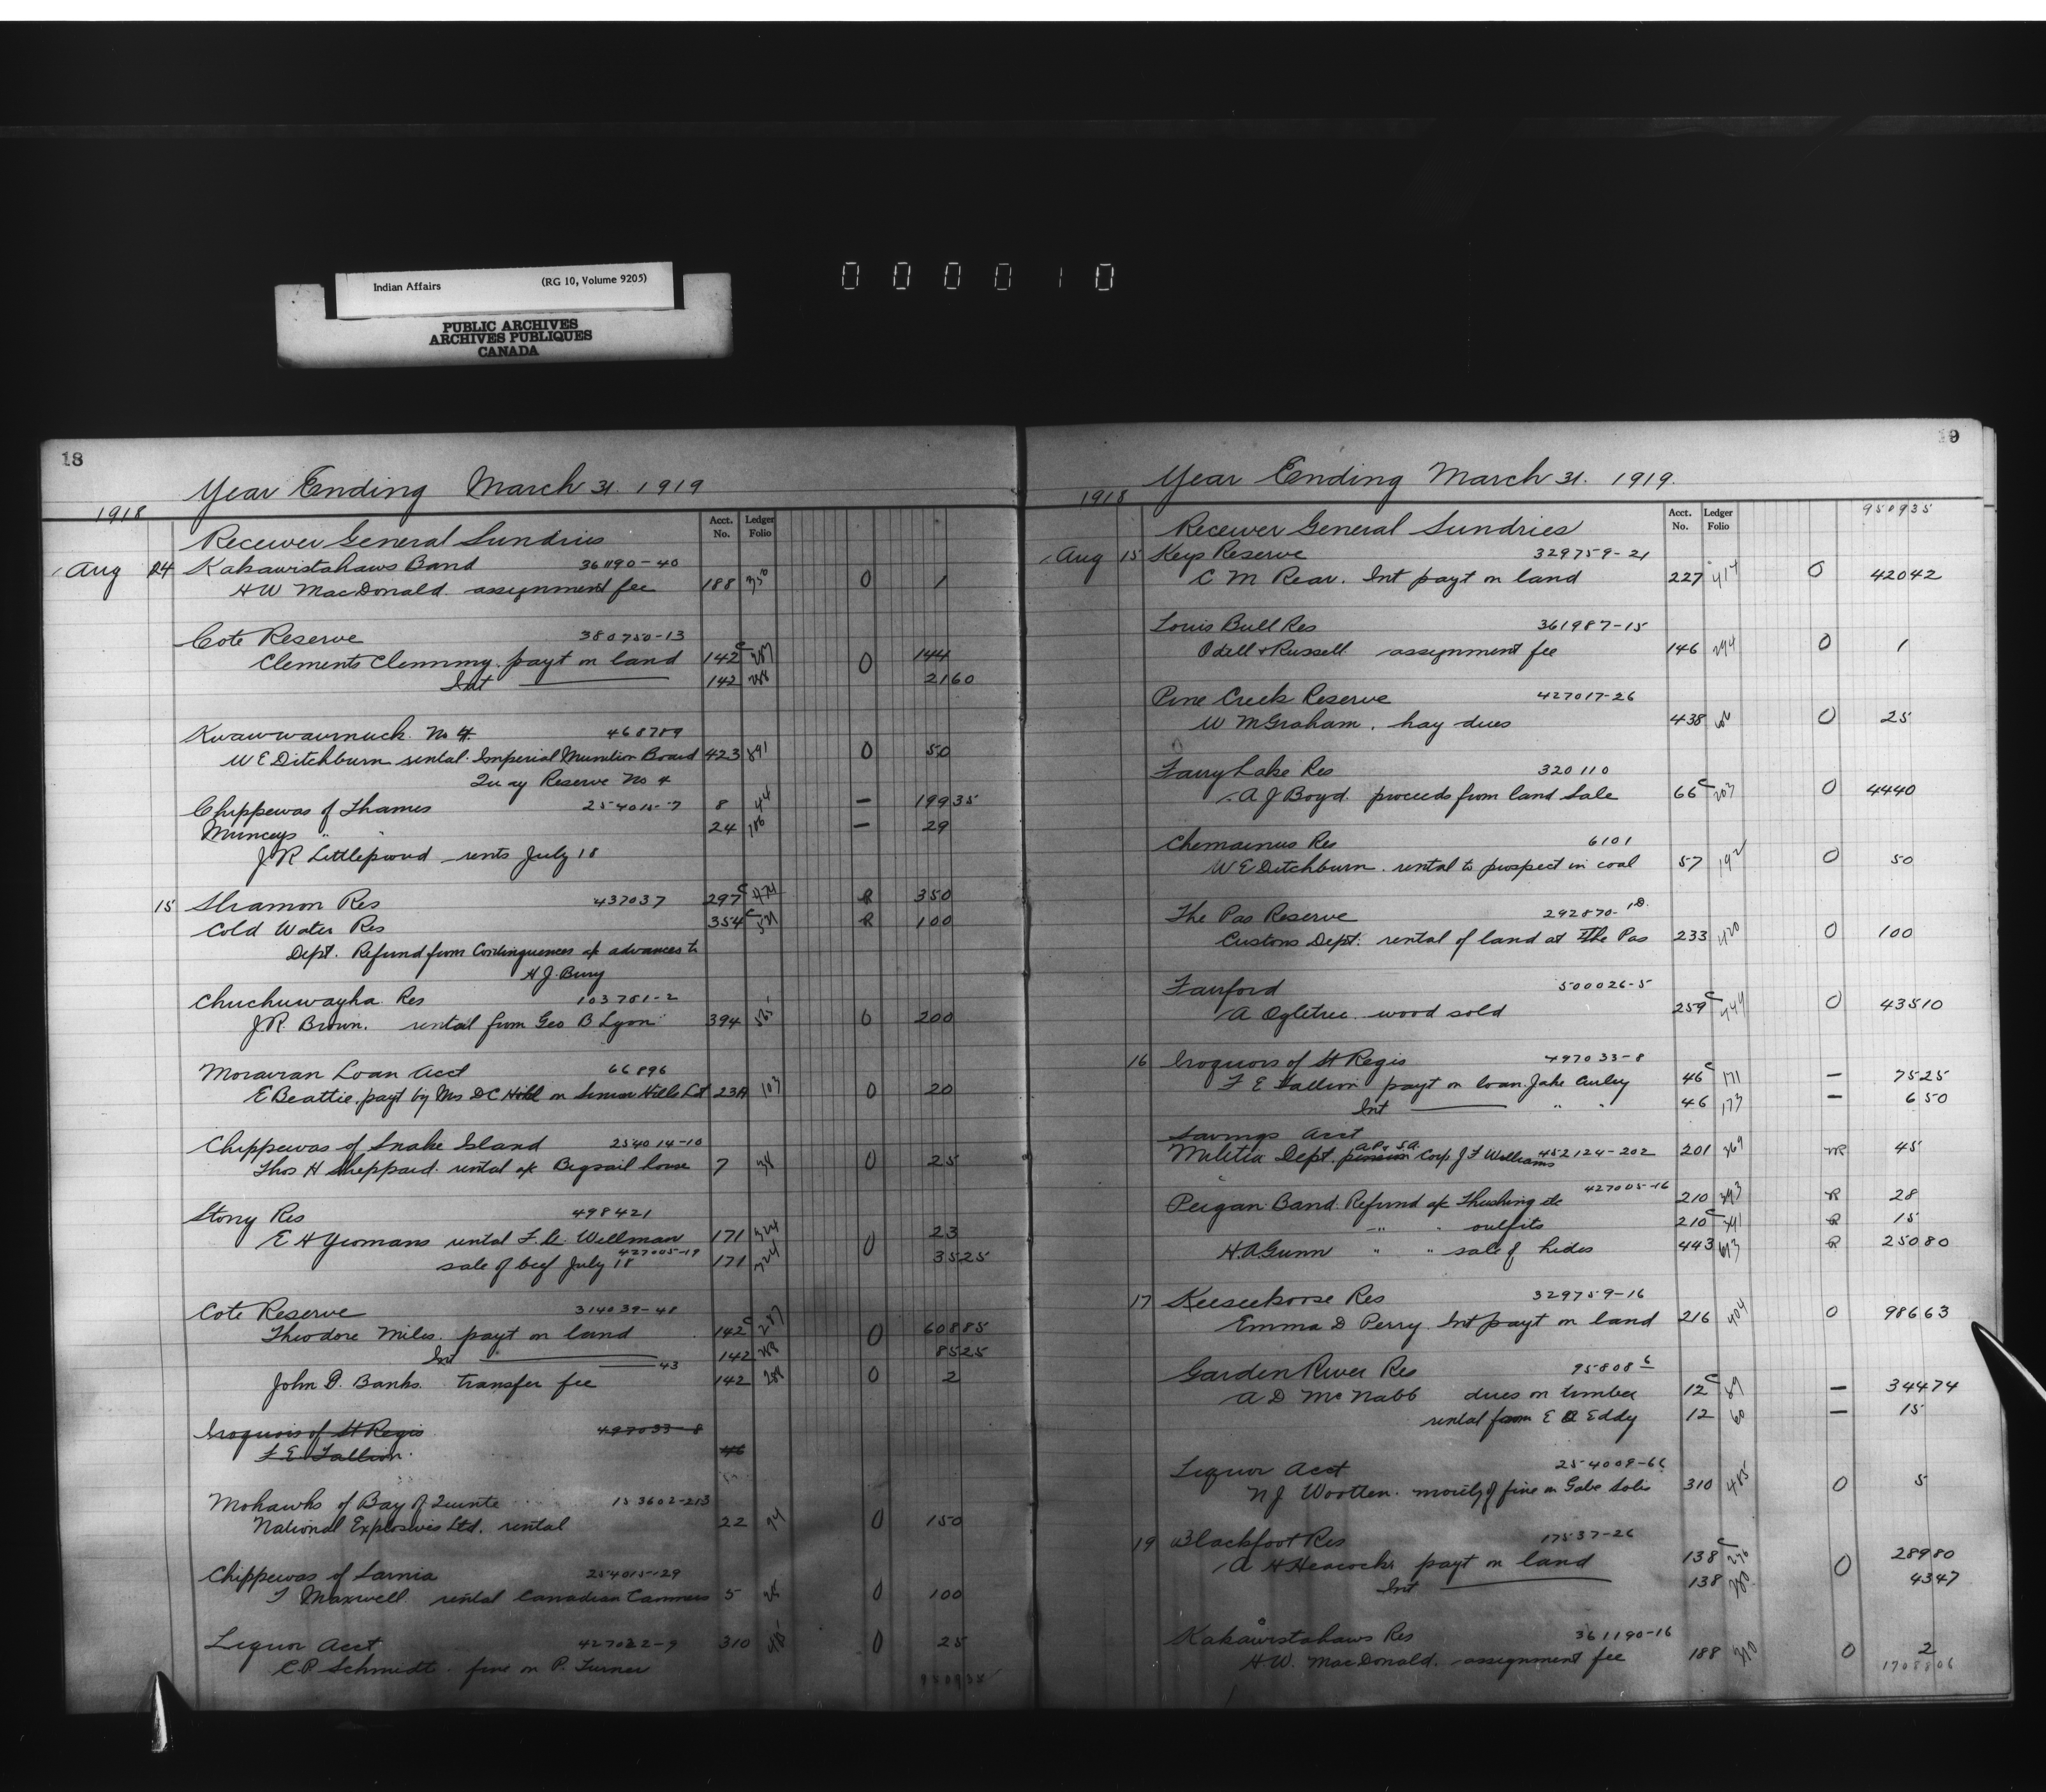 Indian Affairs (RG 10, Volume 9205)
PUBLIC ARCHIVES
ARCHIVES PUBLIQUES
CANADA
000010
18
Year Ending March 31. 1919
1918
Acct. No. Ledger Folio
Receiver General Sundries
Aug 14 Kakawistahaws Band 361190-40
H W MacDonald assignment fee 188 350 0 1
Cote Reserve 380750-13
Clements Clemmy. payt on land 142c 287 0 144
Int 142 288 2160
Kwawwaurnuck No 4. 468789
W E Ditchburn rental Imperial Munition Board 423 591 0 50
Quay Reserve No 4
Chippewas of Thames 254015-7 8 44 — 19935
Munceys " " 24 106 — 29
J R Littleproud rents July 18
15 Shamon Res 437037 297c 474 R 350
Cold Water Res 354c R 100
Dept. Refund from Contingencies a/c advances to
H J. Bury
Chuchuwayha Res 103751-2
J R Brown. rental from Geo B Lyon 394 565 0 200
Moravian Loan Acct 66896
E Beattie. payt by Mrs D C Hill on Hills Lot 23A 103 0 20
Chippewas of Snake Island 254014-10
Thos H Sheppard. rental of Bigsail house 7 38 0 25
Stony Res 498421
E H Yeomans rental F. C. Wellman 171 324 0 23
sale of beef July 18 427005-19 171 324 3525
Cote Reserve 314039-48
Theodore Miles. payt on land 142c 287 0 60885
Int 142 288 8525
43
John D. Banks. transfer fee 142 288 0 2
Iroquois of St Regis 497033-8
F E Tallion. 46
Mohawks of Bay of Quinte 153602-213
National Explosives Ltd. rental 22 94 0 150
Chippewas of Sarnia 254015-129
T Maxwell rental Canadian Canners 5 25 0 100
Liquor Acct 427022-9 310 485 0 25
C.P. Schmidt. fine on P. Turner
950935
19
Year Ending March 31. 1919.
1918
Acct. No. Ledger Folio 950935
Receiver General Sundries
Aug 15 Keys Reserve 329759-21
C M Rear. Int payt on land 227 414 0 42042
Louis Bull Res 361987-15
Odell & Russell assignment fee 146 294 0 1
Pine Creek Reserve 427017-26
W M Graham. hay dues 438 0 25
Fairy Lake Res 320110
A J Boyd. proceeds from land Sale 66c 203 0 4440
Chemainus Res 6101
W E Ditchburn. rental to prospect in coal 57 192 0 50
The Pas Reserve 292870-1D.
Customs Dept. rental of land at The Pas 233 420 0 100
Fairford 500026-5
A Ogletree wood sold 259c 444 0 43510
16 Iroquois of St Regis 497033-8
F E Tallion payt on loan. Jake Curley 46c 171 — 7525
Int " " 46 173 — 650
Savings Acct
Militia Dept. pension A.P. & S.A. Corp. J F Williams 452124-202 201 369 45
Peigan Band. Refund a/c Thrashing etc 427005-16 210 393 R 28
" " outfits 210c 391 R 15
H. A Gunn " " sale of hides 443 613 R 25080
17 Keeseekoose Res 329759-16
Emma D Perry Int payt on land 216 404 0 98663
Garden River Res 95808-6
A D McNabb dues on timber 12c 59 — 34474
rental from E B Eddy 12 60 — 15
Liquor Acct 254009-66
N J Wootten. moiety of fine on Gabe Solis 310 485 0 5
19 Blackfoot Res 17537-26
A H Heacock. payt on land 138c 276 0 28980
Int 138 280 4347
Kakawistahaws Res 361190-16
H W. MacDonald. assignment fee 188 350 0 2
1708806